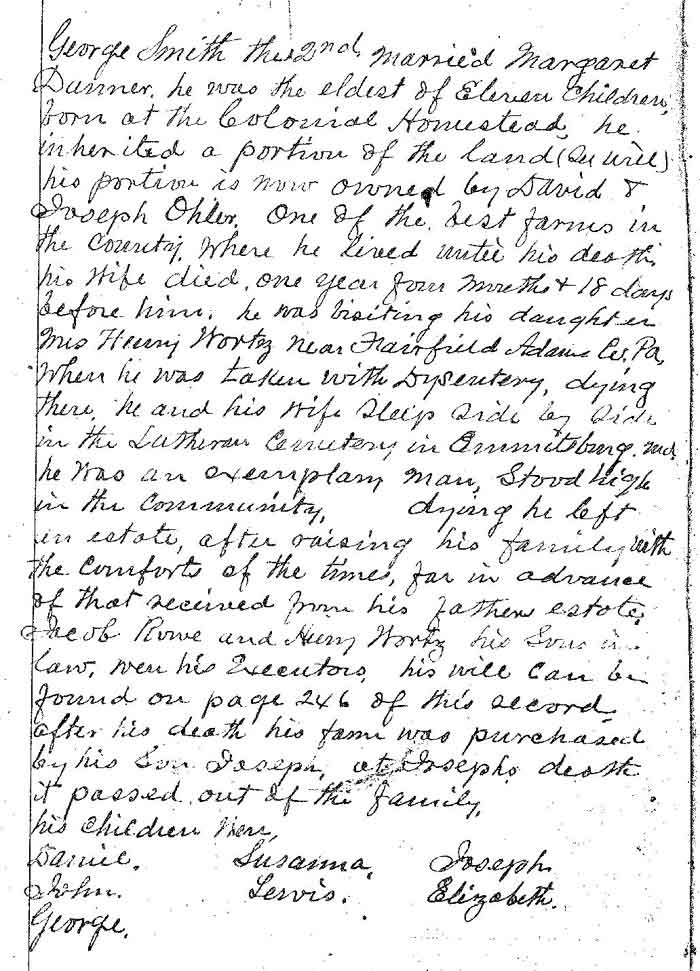 George Smith the 2nd, married Margaret
Danner, he was the eldest of Eleven Children,
born at the Colonial Homestead, he
inherited a portion of the land (See will)
his portion is now owned by David &
Joseph Ohler, One of the best farms in
the County, Where he lived until his death,
his Wife died, one year four months & 18 days
before him. he was visiting his daughter
Mrs Henry Wortz near Fairfield Adams Co, Pa,
When he was taken with Dysentery, dying
there, he and his Wife Sleep Side by Side
in the Lutheran Cemetery in Emmitsburg. Md,
he was an exemplary man, Stood high
in the Community, dying he left
an estate, after raising his family with
the Comforts of the times, far in advance
of that received from his fathers estate,
Jacob Rowe and Henry Wortz his Sons in
law, were his Executors, his will Can be
found on page 246 of this record,
after his death his farm was purchased
by his Son Joseph, at Josephs death
it passed out of the family,
his Children Were,
Daniel. Susanna, Joseph
John. Lewis. Elizabeth.
George.